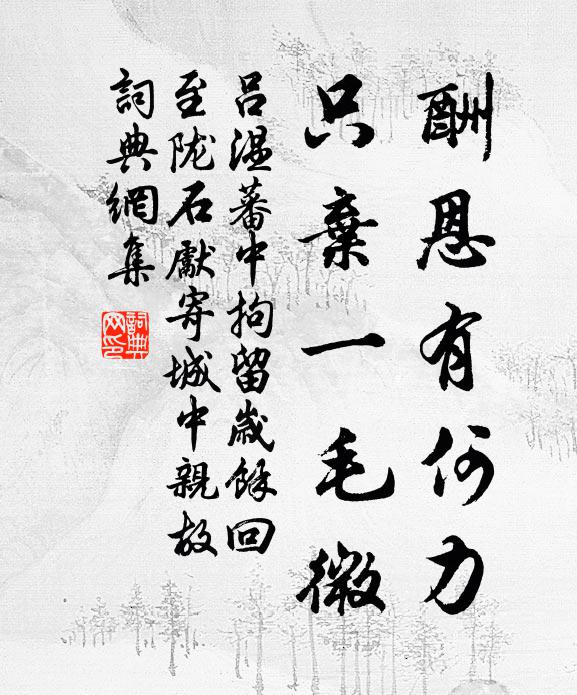 酬恩有何力
只棄一毛微
呂溫蕃中拘留歲餘回
至陇石獻寄城中親故
詞典網集
詞典
网印